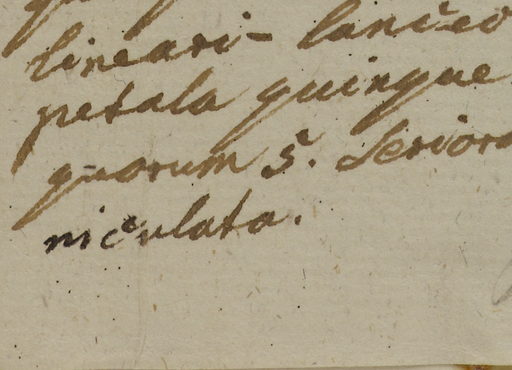 lineari- lanceo
petala quinque
quorum 5. Serior
niculata.